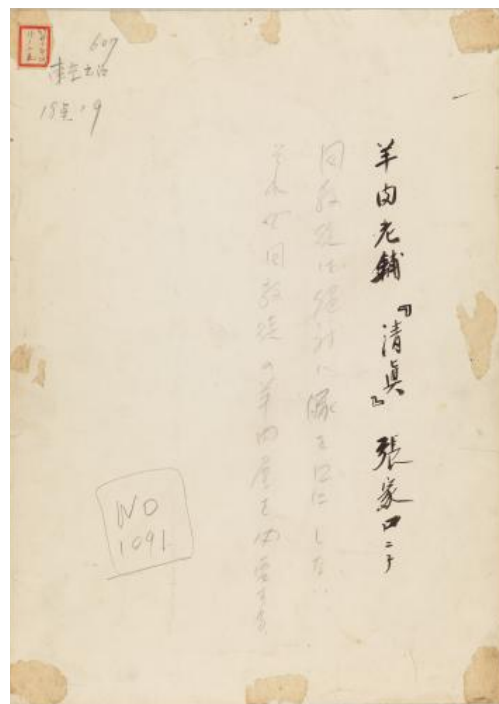 羊肉老舗『清真』 張家口ニテ
回教徒は絶対に豚を口にしない
回教徒の羊肉屋を
607
NO
1091